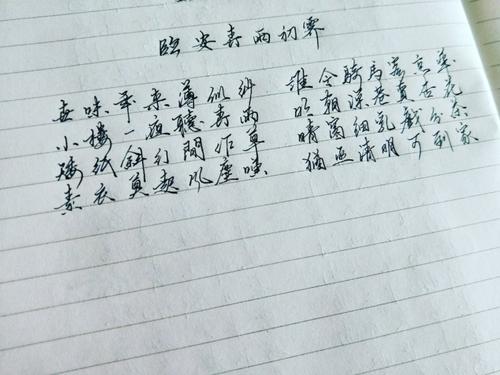 臨安春雨初霁
世味年来薄似纱 谁令騎馬客京華
小樓一夜聽春雨 明朝深巷賣杏花
矮纸斜行閒作草 晴窗细乳戲分茶
素衣莫起风塵嘆 猶及清明可到家